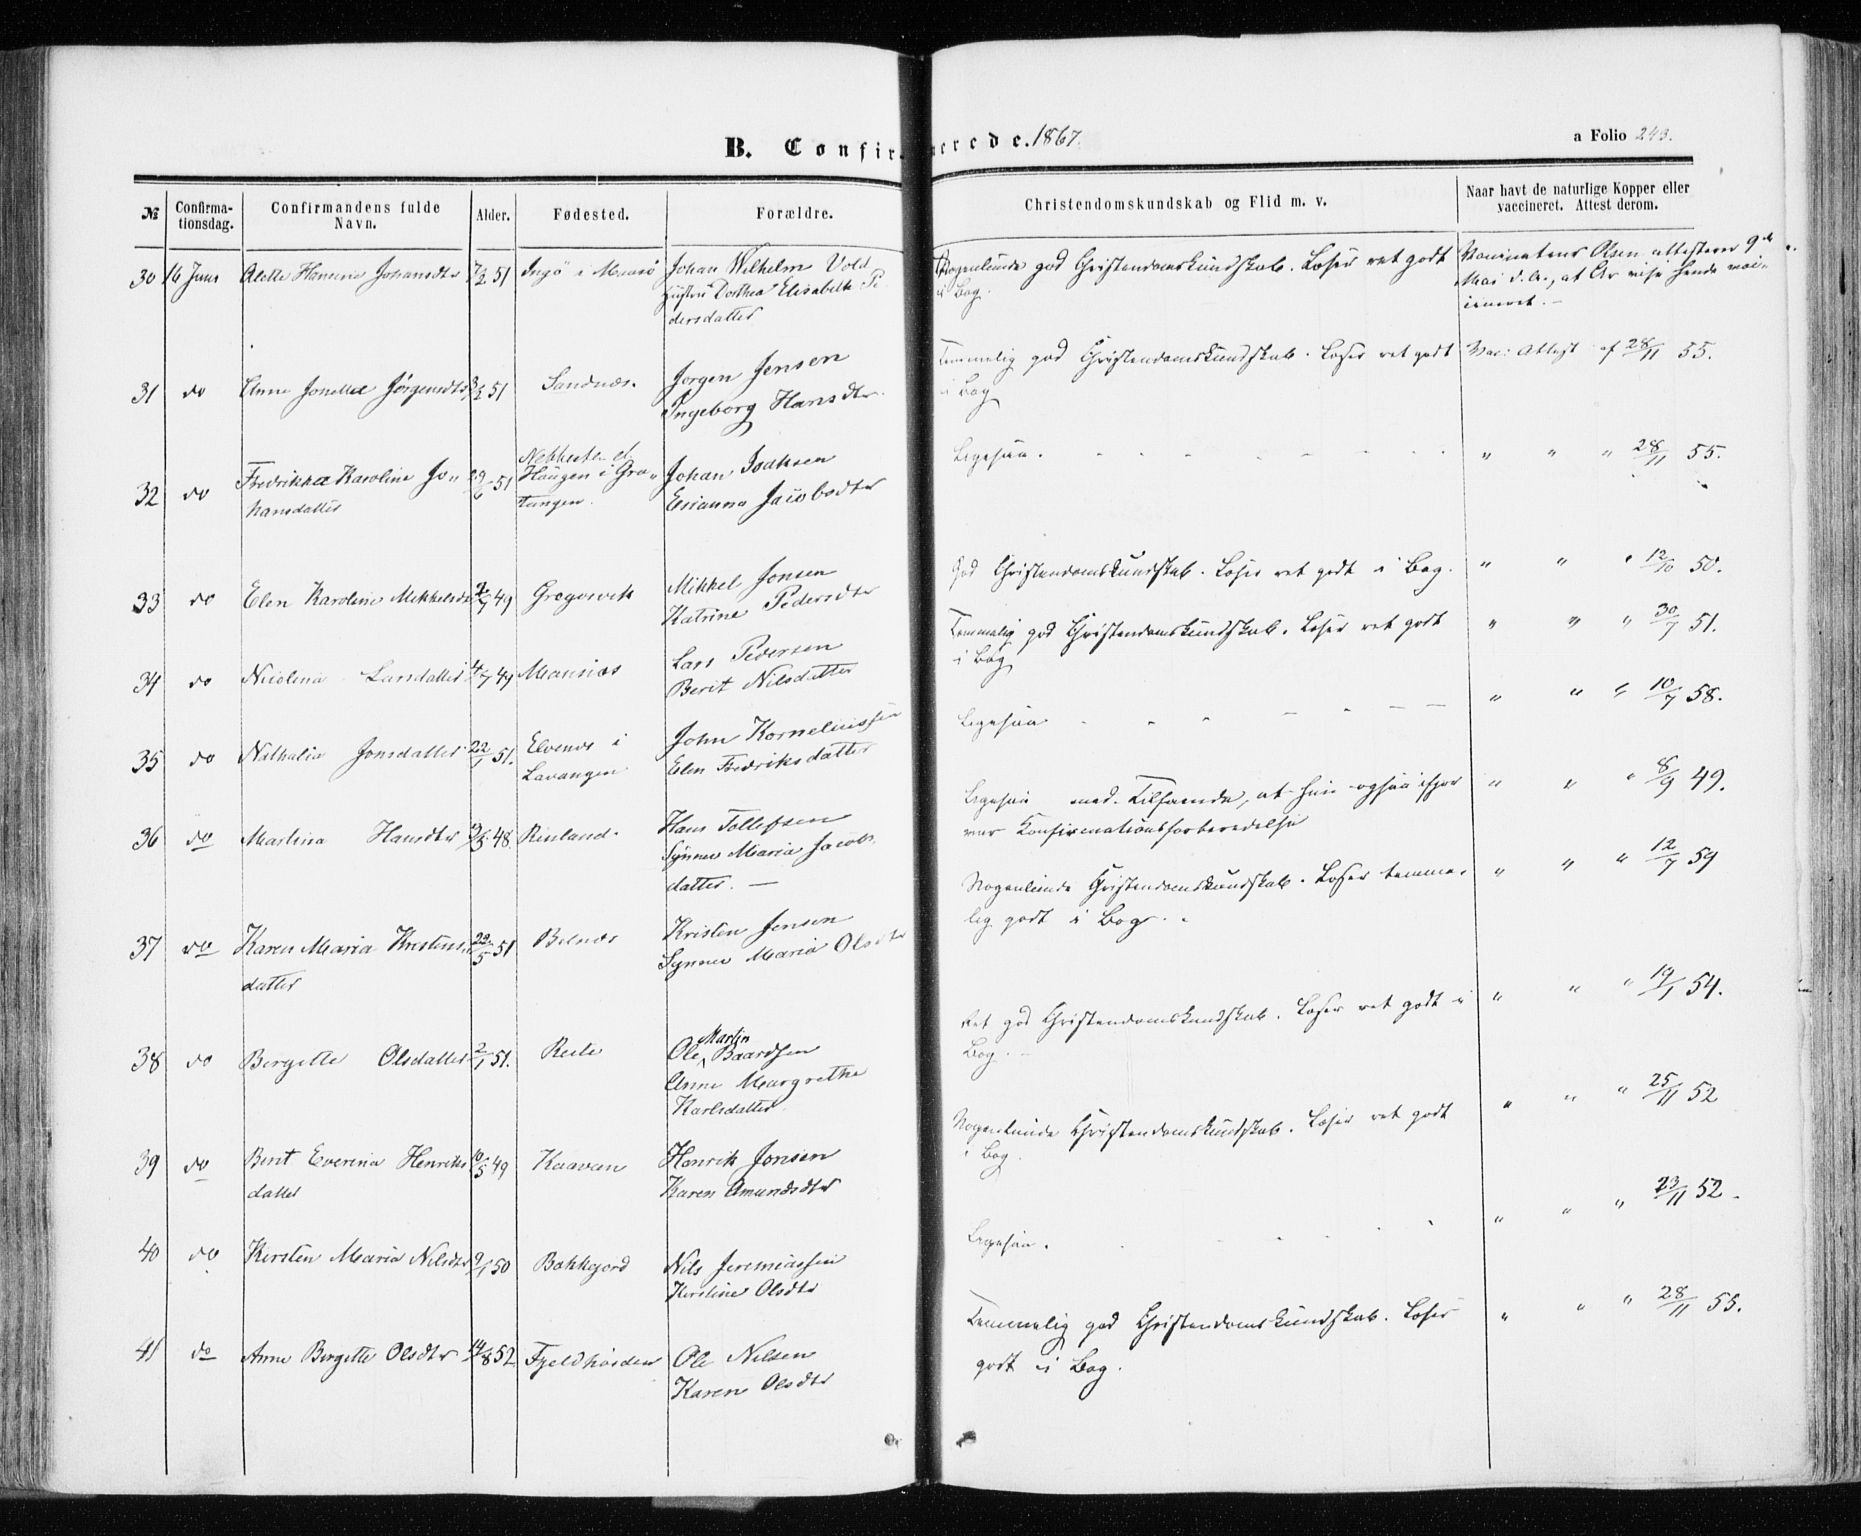 B. Confirmerede. 1867.
a Folio 243.
№ Confirma-tionsdag. Confirmandens fulde Navn. Alder. Fødested. Forældre. Christendomskundskab og Flid m. v. Naar havt de naturlige Kopper eller vaccineret. Attest derom.
30 16 Juni Alette Hansine Johansdtr 51 Ingø i Maasø Johan Wilhelm Vold
Hustru Dorthea Elisabeth Pe
dersdatter
Nogenlunde god Christendomskundskab. Læser ret godt
i Bog.
Olsen attesterer 9de
Mai d. A., at
31 do Anne Jørgensdtr 51 Sandnæs. Jørgen Jensen
Ingeborg Hansdtr.
Temmelig god Christendomskundskab. Læser ret godt
i Bog
Vac: Attest af 28/11 55.
32 do Fredrikka Karoline Jo-
hansdatter
29/6 51
Haugen i Gra-
tangen.
Johan Isaksen
Erianna Jacobsdtr
Ligesaa. " " " 28/11 55.
33 do Elen Karoline Mikkelsdtr 49 Mikkel Jonsen
Katrine Pedersdtr
God Christendomskundskab. Læser ret godt i Bog. " " " 12/10 50.
34 do Nicolina Larsdatter 4/7 49 Lars Pedersen
Berit Nilsdatter
Temmelig god Christendomskundskab. Læser ret godt
i Bog
" " " 30/7 51.
35 do Nathalia Jonsdatter 22/1 51. Elvenæs i
Lavangen
John Korneliussen
Elen Fredriksdatter
Ligesaa " " " 10/7 58.
36 do Martina Hansdtr 48. Hans Tollefsen
Synner Maria Jacobs
datter. —
Ligesaa med Tilføiende, at hun ogsaa
var Konfirmationsforberedelse
" " " 8/9 49.
37 do Karen Maria Kristens
datter
22/5 51 Kristen Jensen
Synner Maria Olsdtr
Nogenlunde Christendomskundskab. Læser temme-
lig godt i Bog.
" " " 12/7 59
38 do Bergette Olsdatter 2/1 51. Ole Martin Baardsen
Anne Margrethe
Karlsdatter.
Ret god Christendomskundskab. Læser ret godt i
Bog.
" " " 19/1 54.
39 do Berit Everina Henriks
datter
10/5 49 Kaavan Henrik Jonsen
Karen Amundsdtr
Nogenlunde Christendomskundskab. Læser ret godt
i Bog.
" " " 25/11 52
40 do Kersten Maria Nilsdtr 9/1 50 Bakkejord Nils Jeremiassen
Kerstine Olsdtr
Ligesaa. " " " 23/11 52.
41 do Anne Bergette Olsdtr 14/8 52 Ole Nilsen
Karen Olsdtr
Temmelig god Christendomskundskab. Læser
godt i Bog.
" " " 28/11 55.